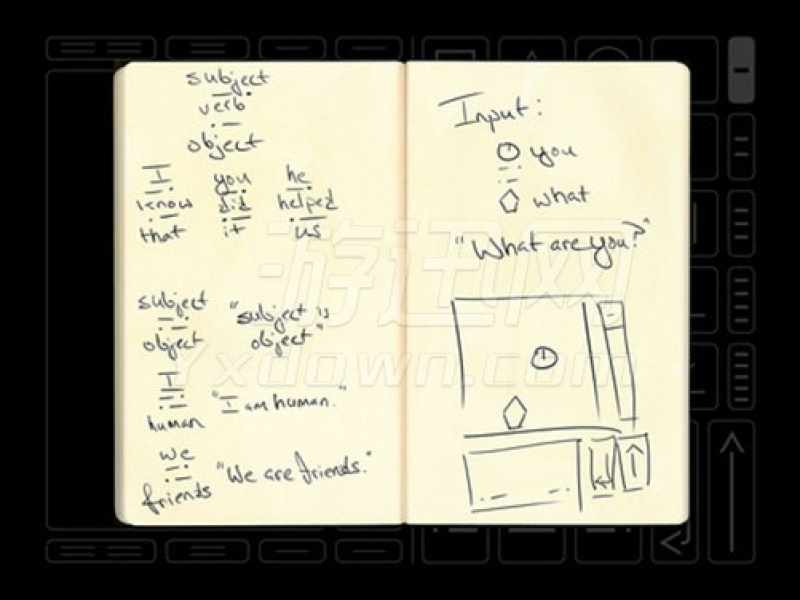 subject
verb
object
I you he
know did helped
that it us
subject "subject is
object object"
I
human "I am human."
we
friends "We are friends."
Input:
you
what
"What are you?"
游迅网
Yxdown.com